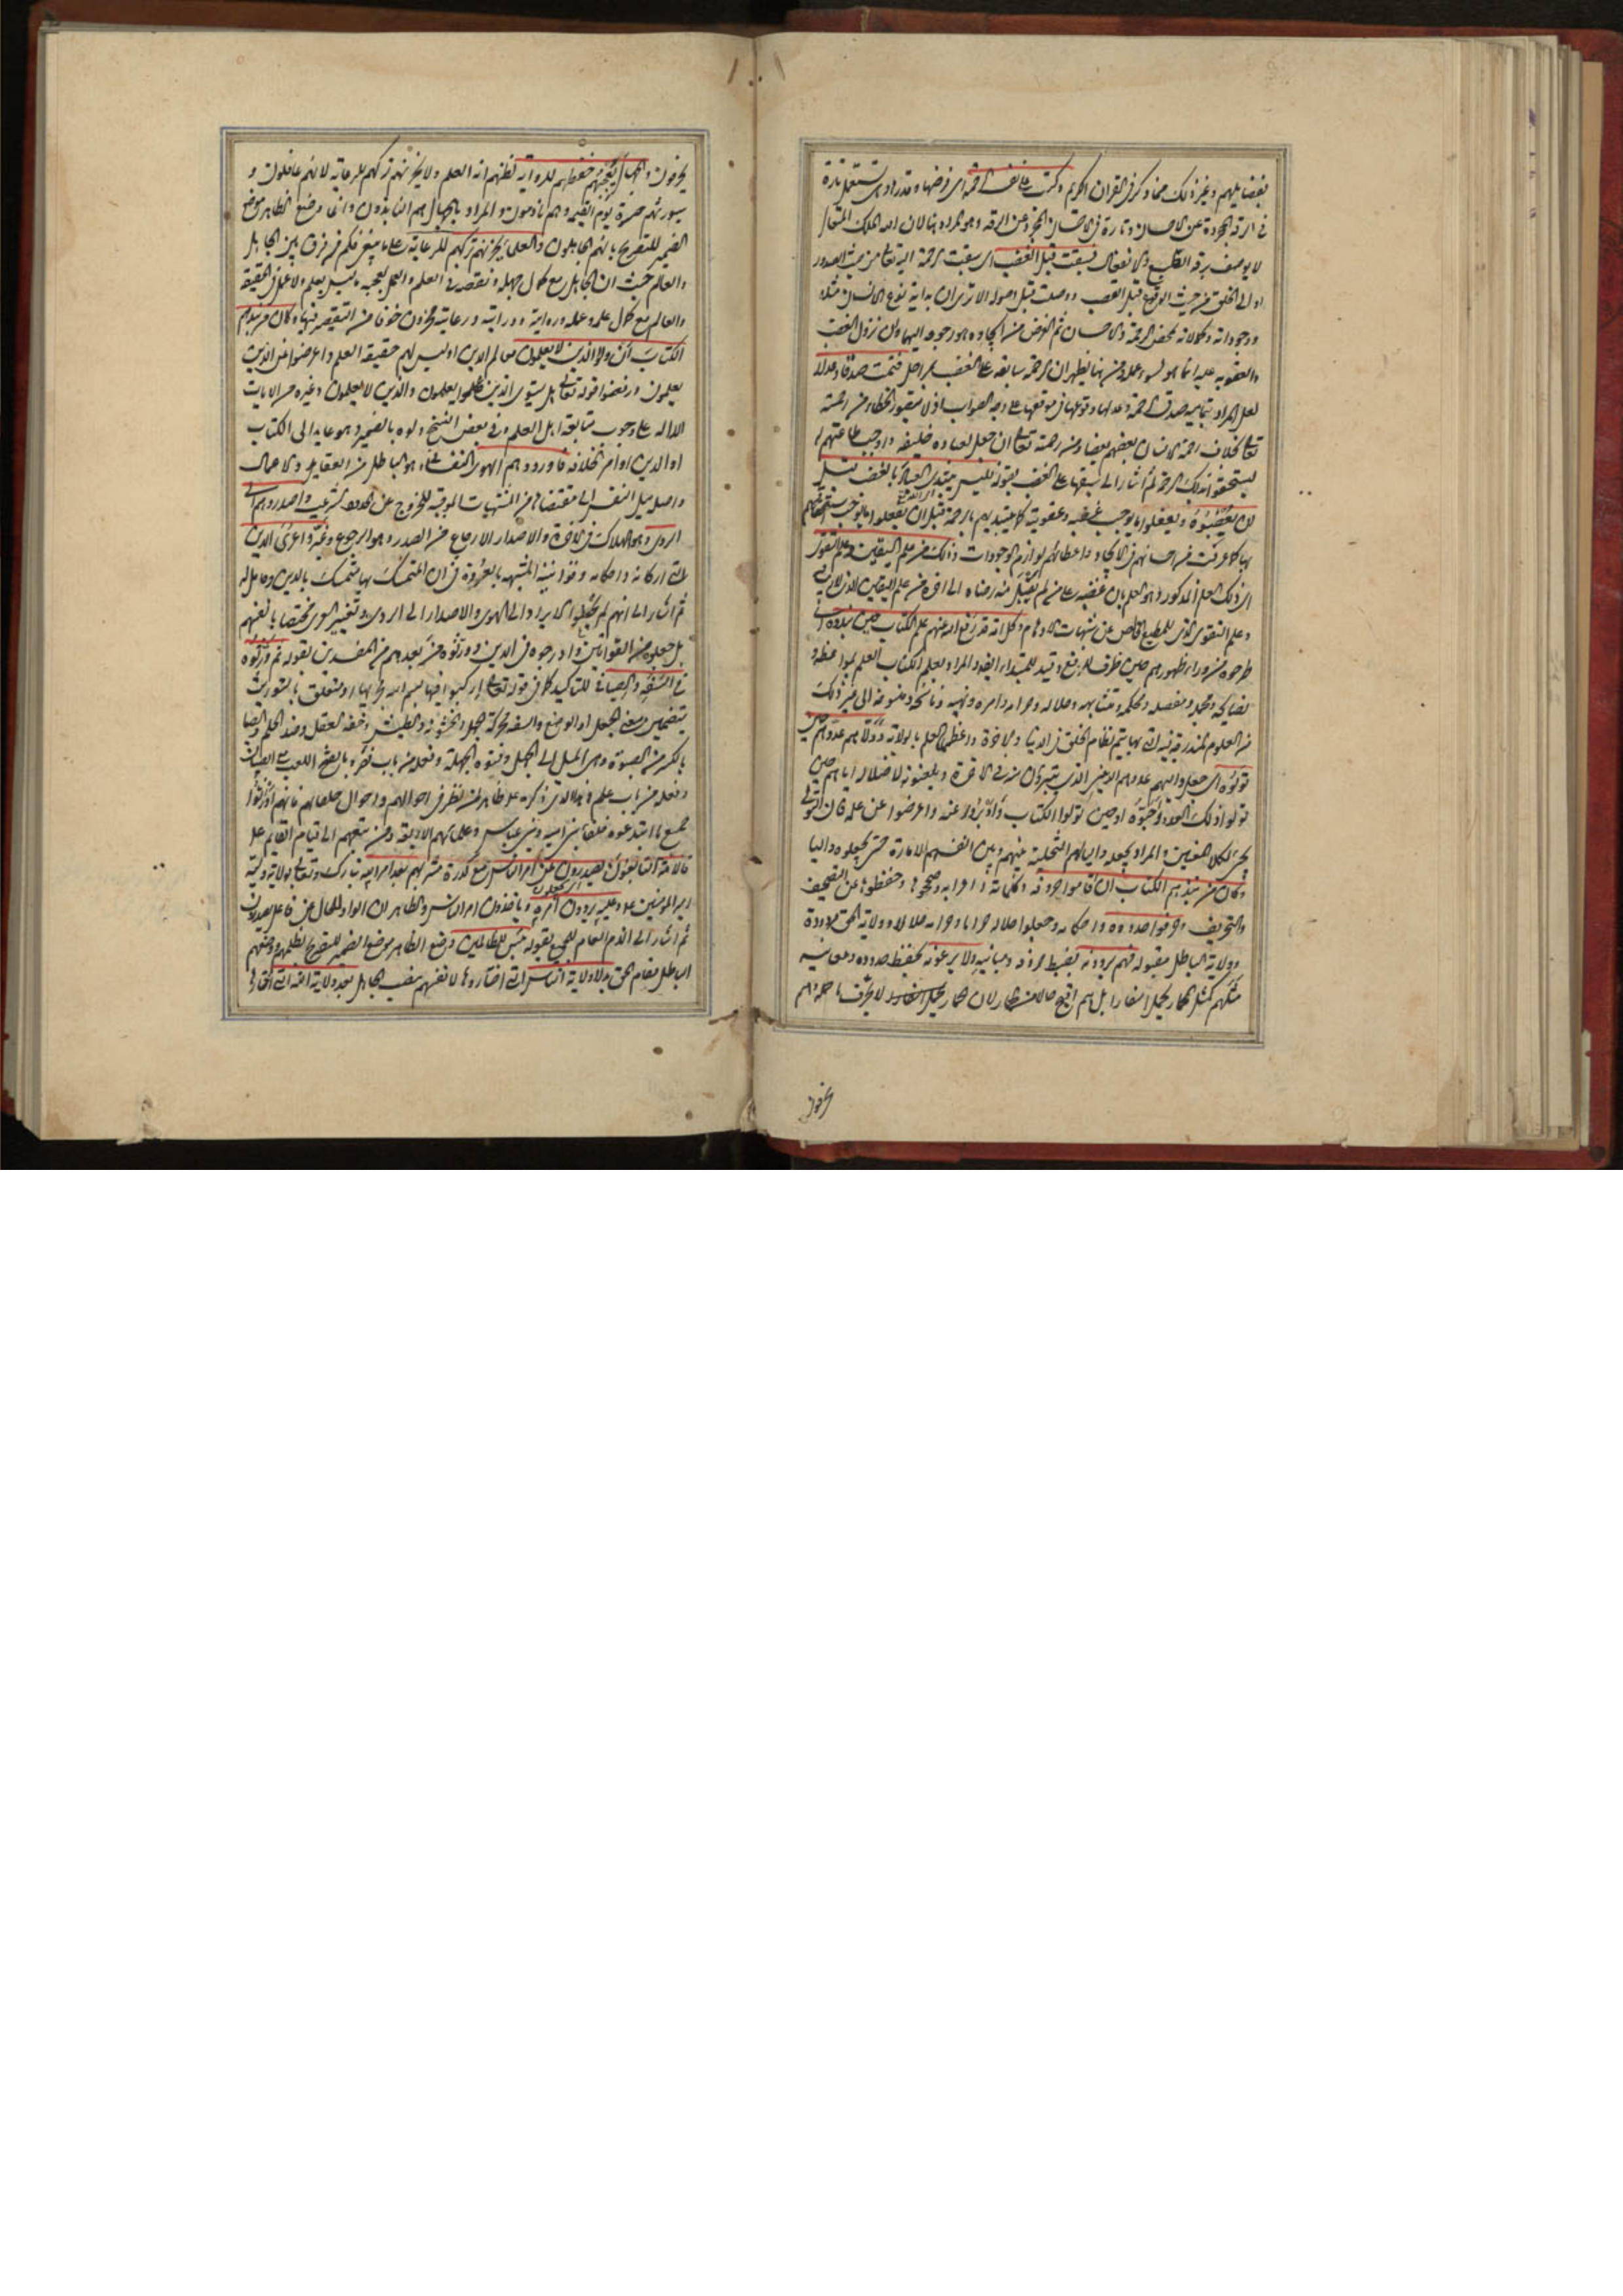 بفضايلهم وغير ذلك مما ذكر في القران الكريم وكتب على نفسه الرحمة اى فرضها وقدر اذ هى تستعمل تارة
في الرقة المجردة عن الاحسان وتارة في الاحسان المجرد عن الرقة وهو المراد هنا لان الله الملك المتعال
لا يوصف برقة القلب والانفعال فسبقت قبل الغضب اى سبقت الرحمة اليه تعالى من حيث الصدور
او الى الخلق من حيث الوقوع قبل الغضب ووصلت قبل وصوله الا ترى ان بداية نوع الانسان مثلا
ووجوداته وكمالاته بمحض الرحمة والاحسان ثم الغرض من ايجاده هو رجوعه اليها وان نزول الغضب
والعقوبة عليه انما هو لسوء عمله ومن هنا يظهر ان الرحمة سابقة على الغضب بمراحل فتمت صدقا وعدلا
لعل المراد بتماميه صدق الرحمة وعدلها وقوعها في موقعها على وجه الصواب اذ لا يتصور الخطاء من رحمته
تعالى بخلاف رحمة الانسان بعضهم بعضا ومن رحمته تعالى ان جعل لعباده خليفة واوجب طاعتهم له
ليستحقوا بذلك الرحمة ثم اشار الى سبقها على الغضب بقوله فليس يبتدى العباد بالغضب قبل
ان يغضبوه ويفعلوا ما يوجب غضبه وعقوبته كما يبتديهم بالرحمة قبل ان يفعلوا ما يوجب استحقاقهم
بها كما عرفت من احسانهم في الايجاد واعطائهم لوازم الوجودات وذلك من علم اليقين وعلم التقوى
اى ذلك العلم المذكور وهو العلم بان غضبه على من لم يقبل منه رضاه الى اخره من علم اليقين الذى لا ريب فيه
وعلم التقوى الذى للمطيع الخالص عن شبهات الاوهام وكل امة قد رفع الله عنهم علم الكتاب حين نبذوه اى
طرحوه من وراء ظهورهم حين ظرف للرفع وقيد للمبتداء ايضا والمراد بعلم الكتاب العلم بمواعظه و
نصايحه ومجمله ومفصله ومحكمه ومتشابهه وحلاله وحرامه وامره ونهيه وناسخه ومنسوخه الى غير ذلك
من العلوم المندرجة فيه التى بها يتم نظام الخلق في الدنيا والاخرة واعظمها العلم بالولاية وولاهم عدوهم حين
تولوه اى جعل واليهم عدوهم الذين يتبرؤن منه في الاخرة ويلعنونه لاضلاله اياهم حين
تولوا ذلك العدو واحبوه او حين تولوا الكتاب وادبروا عنه واعرضوا عن علمه فان التولى
يجئ لكلا المعنيين والمراد بجعله واليا لهم التخلية بينهم وبين انفسهم الامارة حتى يجعلوه واليا
وكان من نبذهم الكتاب ان اقاموا حروفه وكلماته واعرابه وصححوها وحفظوها عن التصحيف
والتحريف وحرفوا حدوده واحكامه وجعلوا حلاله حراما وحرامه حلالا وولاية الحق مردودة
وولاية الباطل مقبولة فهم يروونه بضبط حروفه ومبانيه ولا يرعونه بحفظ حدوده ومعانيه
مثلهم كمثل الحمار يحمل اسفارا بل هم اقبح حالا من الحمار لان الحمار يحمل اسفارا لا يحرف ما حمله وهم
يحرفون
يحرفون والجهال يعجبهم حفظهم للرواية لظنهم انه العلم ولا يحزنهم تركهم للرعاية لانهم غافلون و
سيورثهم حسرة يوم القيمة وهم نادمون والمراد بالجهال هم النابذون وانما وضع الظاهر موضع
الضمير للتصريح بانهم الجاهلون والعلماء يحزنهم تركهم للرعاية على ما ينبغي فكم من فرق بين الجاهل
والعالم حيث ان الجاهل مع كمال جهله ونقصه في العلم والعمل يعجبه ما ليس بعلم ولا عمل في الحقيقة
والعالم مع كمال علمه وعمله ورواية ودراية ورعاية محزون خوفا من التقصير فيها وكان من نبذهم
الكتاب ان ولوه الذين لا يعلمون معالم الدين او ليس لهم حقيقة العلم واعرضوا عن الذين
يعلمون ورفضوا قوله تعالى هل يستوى الذين يعلمون والذين لا يعلمون وغيره من الايات
الدالة على وجوب متابعة اهل العلم وفي بعض النسخ ولوه بالضمير وهو عايد الى الكتاب
او الدين او امر الخلافة فاوردوهم الهوى النفسانى وهو الباطل من العقايد والاعمال
واصله ميل النفس الى مقتضاها من المشتهيات الموجبة للخروج عن الحدود الشرعية واصدروهم الى
الردى وهو الهلاك في الاخرة والاصدار الارجاع من الصدر وهو الرجوع وغيروا عرى الدين
التى اركانه واحكامه وقوانينه المشبهة بالعروة في ان المتمسك بها متمسك بالدين وحامل له
ثم اشار الى انهم لم يجعلوا الايراد الى الهوى والاصدار الى الردى وتغيير العرى مختصا بانفسهم
بل جعلوه من القوانين وادرجوه في الدين وورثوه من بعدهم من المفسدين بقوله ثم ورثوه
في السفه والصبا في للتاكيد كما في قوله تعالى اركبوا فيها بسم الله مجريها او متعلق بالتوريث
بتضمين معنى الجعل او الوضع والسفه محركة الجهل والخشونة والطيش وخفة العقل وضد الحلم والصبا
بالكسر من الصبوة وهى الميل الى الجهل وفتوة الجهلة وفعله من باب نصر وبالفتح اللعب مع الصبيان
وفعله من باب علم وهذا الذى ذكره عليه السلام ظاهر لمن نظر في احوالهم واحوال خلفائهم فانهم اورثوا
جميع ما ابتدعوه خلفاء بنى امية وبنى عباس وعلمائهم الاربعة ومن يتبعهم الى قيام القايم عليه السلام
فالامة التابعون يصدرون عن امر الناس مع كدورة مشربهم بعد امر الله تبارك وتعالى بولاية وليه
امير المؤمنين عليه السلام وعليه يردون امره وياخذون امر الناس والظاهر ان الواو للحال عن فاعل يصدرون
ثم اشار الى الذم العام للجميع بقوله بئس للظالمين وضع الظاهر موضع الضمير للتصريح بظلمهم ووضعهم
الباطل مقام الحق بدلا ولاية الناس التى اختاروها لانفسهم بنصب الجاهل بعد ولاية الله التى اختارها